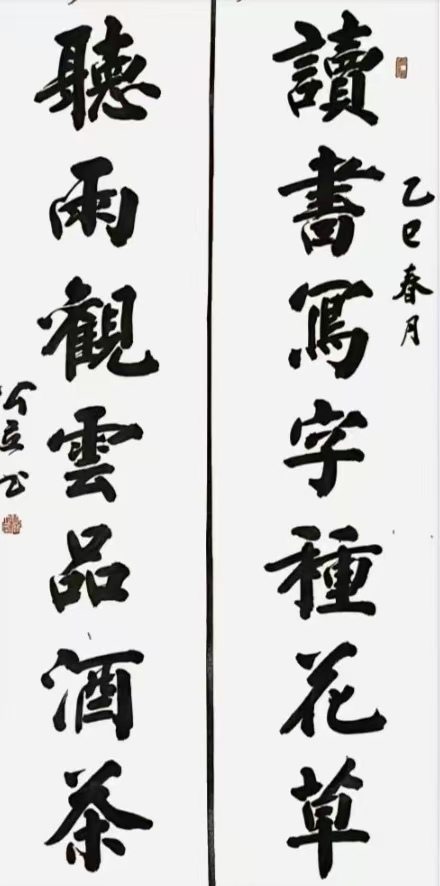 讀書寫字種花草
乙巳春月
聽雨觀雲品酒茶